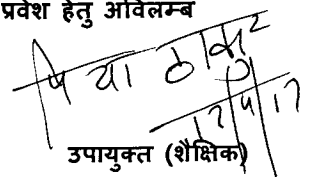 प्रवेश हेतु अविलम्ब
पिया ठाकुर
उपायुक्त (शैक्षिक)